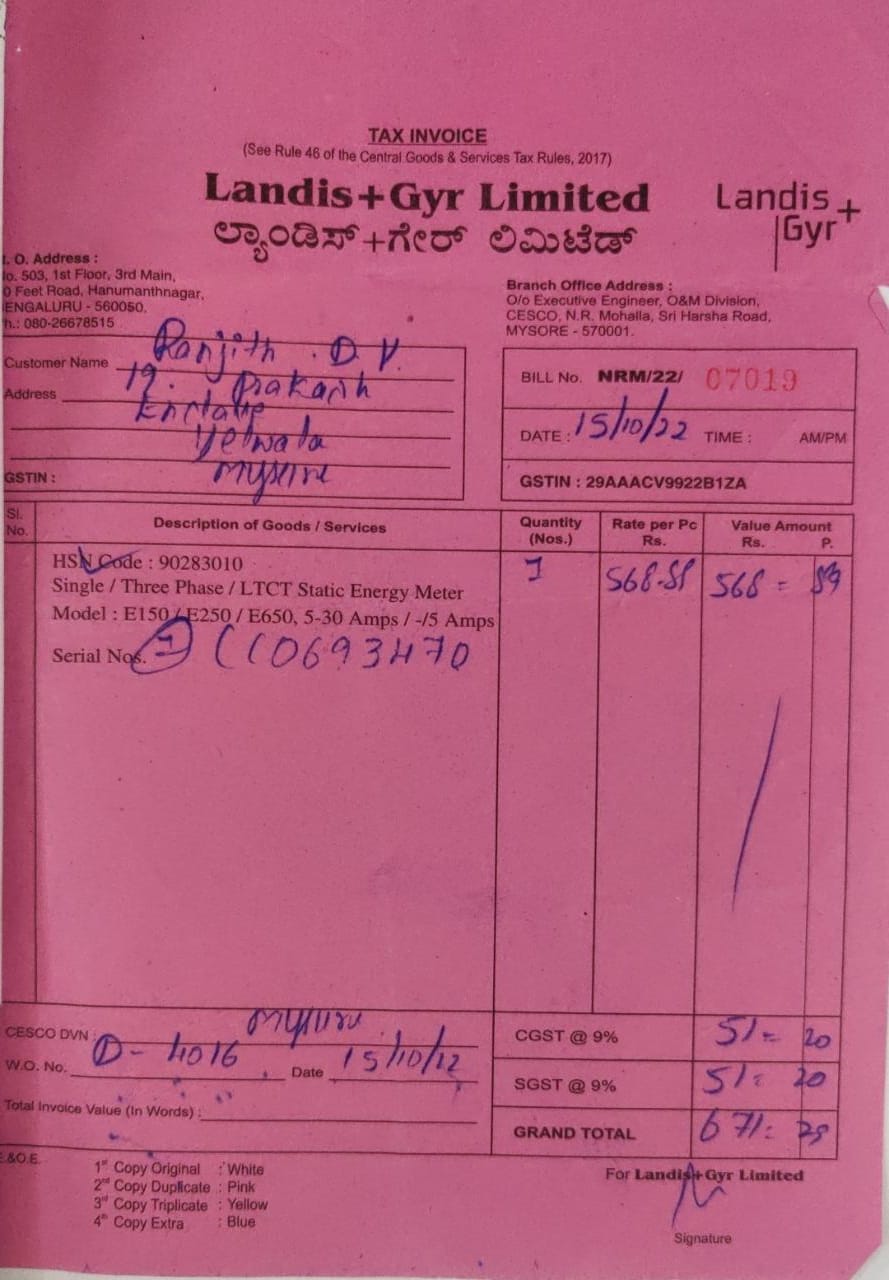 TAX INVOICE
(See Rule 46 of the Central Goods & Services Tax Rules, 2017)
Landis+Gyr Limited
ಲ್ಯಾಂಡಿಸ್+ಗೇರ್ ಲಿಮಿಟೆಡ್
Landis+
Gyr
. O. Address :
o. 503, 1st Floor, 3rd Main,
0 Feet Road, Hanumanthnagar,
ENGALURU - 560050.
h.: 080-26678515
Branch Office Address :
O/o Executive Engineer, O&M Division,
CESCO, N.R. Mohalla, Sri Harsha Road,
MYSORE - 570001.
Customer Name Ranjith . D V.
Address 19. Prakash
Yelwala
GSTIN :
BILL No. NRM/22/ 07019
DATE : 15/10/22 TIME : AM/PM
GSTIN : 29AAACV9922B1ZA
Sl. No. Description of Goods / Services Quantity (Nos.) Rate per Pc Rs. Value Amount Rs. P.
HSN Code : 90283010
Single / Three Phase / LTCT Static Energy Meter
Model : E150 / E250 / E650, 5-30 Amps / -/5 Amps
1 568 =
Serial Nos.
CESCO DVN : Mysuru
W.O. No. D- 4016 Date 15/10/22
Total Invoice Value (In Words) :
CGST @ 9% 51 = 20
SGST @ 9% 51 = 20
GRAND TOTAL 671 =
E.&O.E.
1st Copy Original : White
2nd Copy Duplicate : Pink
3rd Copy Triplicate : Yellow
4th Copy Extra : Blue
For Landis+Gyr Limited
Signature